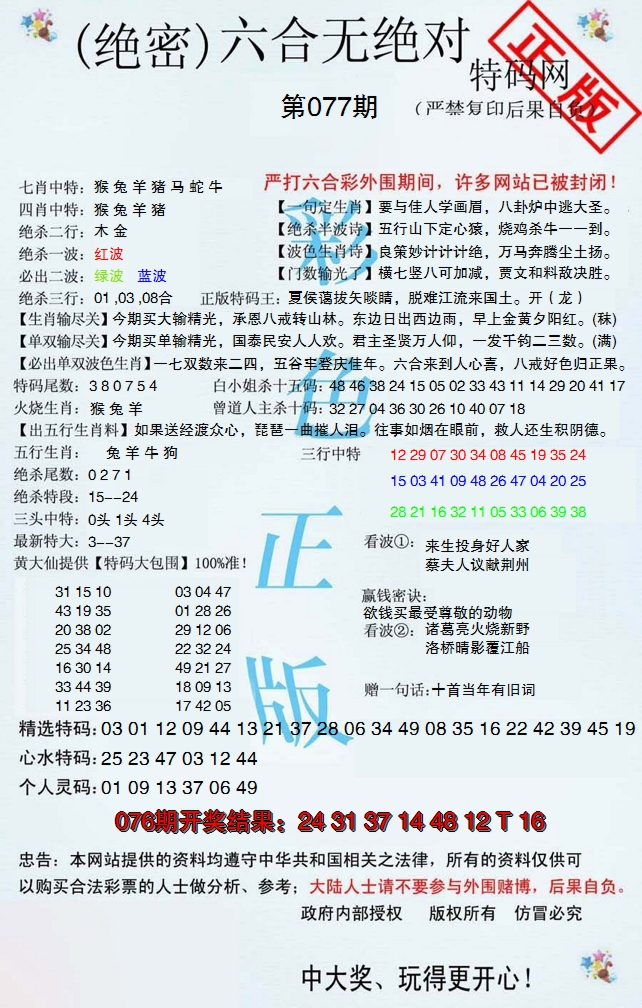 (绝密)六合无绝对
特码网
正版
第077期
(严禁复印后果自负)
严打六合彩外围期间，许多网站已被封闭！
七肖中特：猴 兔 羊 猪 马 蛇 牛
【一句定生肖】要与佳人学画眉，八卦炉中逃大圣。
四肖中特：猴 兔 羊 猪
【绝杀半波诗】五行山下定心猿，烧鸡杀牛一一到。
绝杀二行：木 金
【波色生肖诗】良策妙计计计绝，万马奔腾尘土扬。
绝杀一波：红波
【门数输光了】横七竖八可加减，贾文和料敌决胜。
必出二波：绿波 蓝波
绝杀三行：01 ,03 ,08合 正版特码王：夏侯荡拔矢啖睛，脱难江流来国土。开（ 龙 ）
【生肖输尽关】今期买大输精光，承恩八戒转山林。东边日出西边雨，早上金黄夕阳红。(秣)
【单双输尽关】今期买单输精光，国泰民安人人欢。君主圣贤万人仰，一发千钧二三数。(满)
【必出单双波色生肖】一七双数来二四，五谷丰登庆佳年。六合来到人心喜，八戒好色归正果。
特码尾数：3 8 0 7 5 4 白小姐杀十五码：48 46 38 24 15 05 02 33 43 11 14 29 20 41 17
火烧生肖：猴 兔 羊 曾道人主杀十码：32 27 04 36 30 26 10 40 07 18
【出五行生肖料】如果送经渡众心，琵琶一曲摧人泪。往事如烟在眼前，救人还生积阴德。
五行生肖： 兔 羊 牛 狗
三行中特 12 29 07 30 34 08 45 19 35 24
绝杀尾数：0 2 7 1
15 03 41 09 48 26 47 04 20 25
绝杀特段：15--24
三头中特：0头 1头 4头
28 21 16 32 11 05 33 06 39 38
最新特大：3--37
看波①：来生投身好人家
蔡夫人议献荆州
黄大仙提供【特码大包围】100%准！
31 15 10 03 04 47
43 19 35 01 28 26
20 38 02 29 12 06
25 34 48 22 32 24
16 30 14 49 21 27
33 44 39 18 09 13
11 23 36 17 42 05
赢钱密诀：
欲钱买最受尊敬的动物
看波②：诸葛亮火烧新野
洛桥晴影覆江船
赠一句话：十首当年有旧词
彩色正版
精选特码：03 01 12 09 44 13 21 37 28 06 34 49 08 35 16 22 42 39 45 19
心水特码：25 23 47 03 12 44
个人灵码：01 09 13 37 06 49
076期开奖结果：24 31 37 14 48 12 T 16
忠告：本网站提供的资料均遵守中华共和国相关之法律，所有的资料仅供可
以购买合法彩票的人士做分析、参考；大陆人士请不要参与外围赌博，后果自负。
政府内部授权 版权所有 仿冒必究
中大奖、玩得更开心！